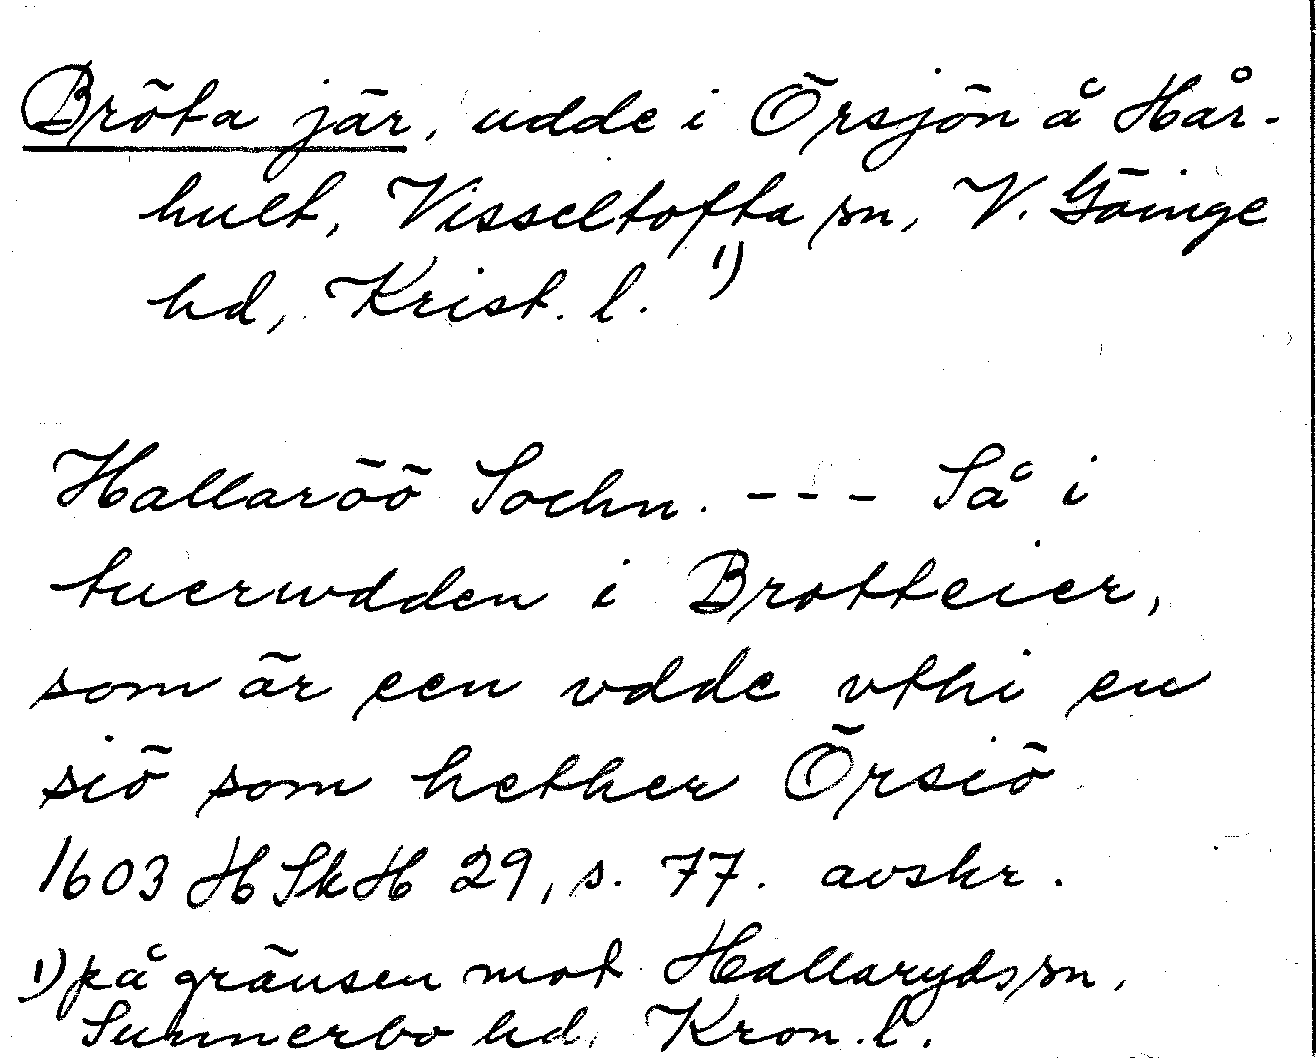 Bröta jär, udde i Örsjön å Hår-
hult, Visseltofta sn, V. Göinge
hd, Krist. l. 1)
Hallaröö Sochn. --- Så i
tuerwdden i Brotteier,
som är een vdde vthi en
siö som hether Örsiö
1603 HSkH 29, s. 77. avskr.
1) på gränsen mot Hallaryds sn,
Sunnerbo hd, Kron. l.